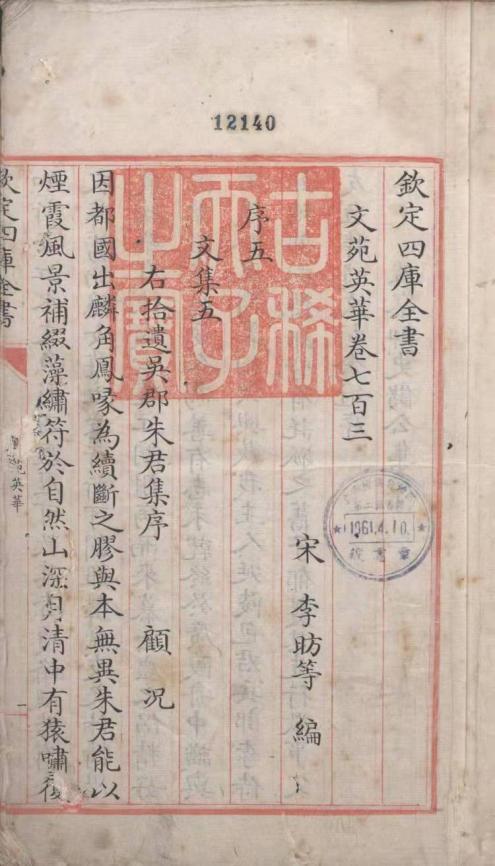 12140
欽定四庫全書
文苑英華卷七百三
宋 李昉等 編
序五
文集五
右拾遺吳郡朱君集序 顧況
因都國出麟角鳳喙為續斷之膠與本無異朱君能以
煙霞風景補綴藻繡符於自然山深月清中有猿嘯復
欽定四庫全書
苑英華
一
古稀
天子
之寶
1961.4.10.